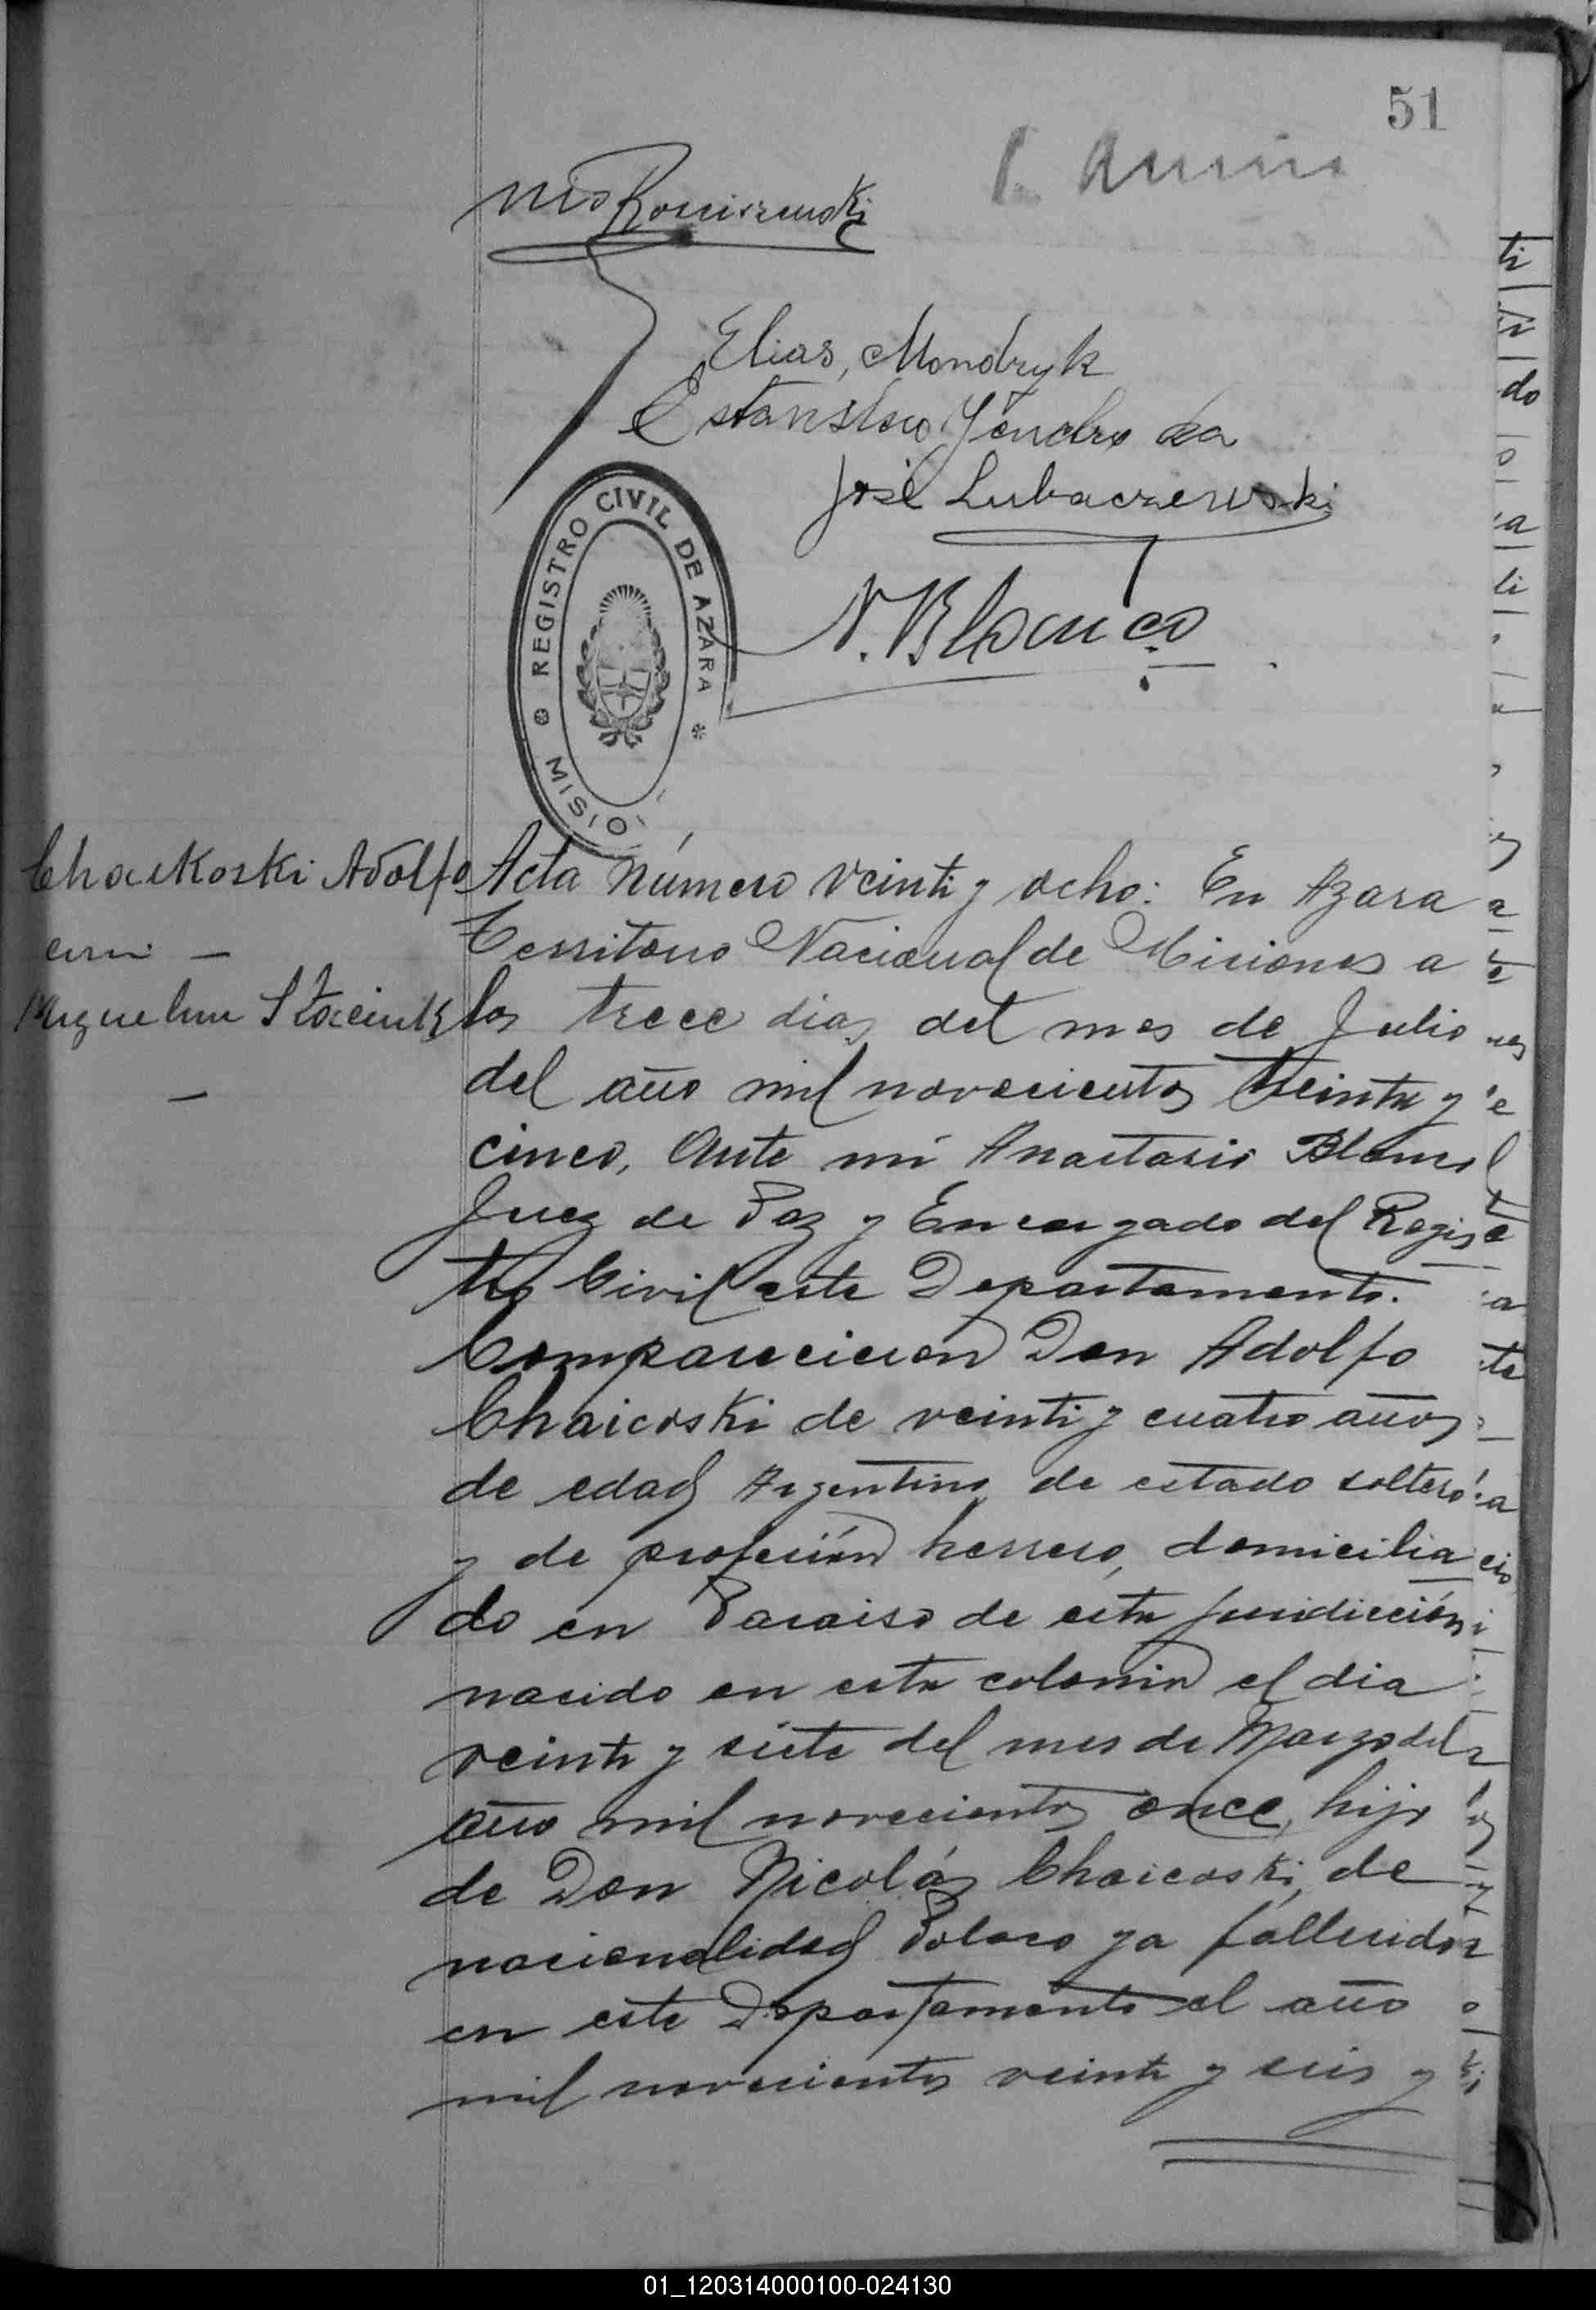 51
Elias, Mondryk
Estanislao
José Lubaczewski
REGISTRO CIVIL DE AZARA
MISIO
A. Blanco
Chaikoski Adolfo
con —
Acta Número veinti y ocho: En Azara
Territorio Nacional de Misiones a
los trece dias del mes de Julio
del año mil novecientos treinta y
cinco, Ante mi Anastasio Blanco
Juez de Paz y Encargado del Regis
tro Civil este Departamento.
Comparecieron Don Adolfo
Chaicoski de veinti y cuatro años
de edad Argentino de estado soltero
y de profesión herrero, domicilia
do en Paraiso de esta juridicción
nacido en esta colonia el dia
veinti y siete del mes de Marzo del
año mil novecientos once, hijo
de Don Nicolás Chaicoski, de
nacionalidad Polaco ya fallecido
en este Departamento el año
mil novecientos veinti y seis y
01_120314000100-024130